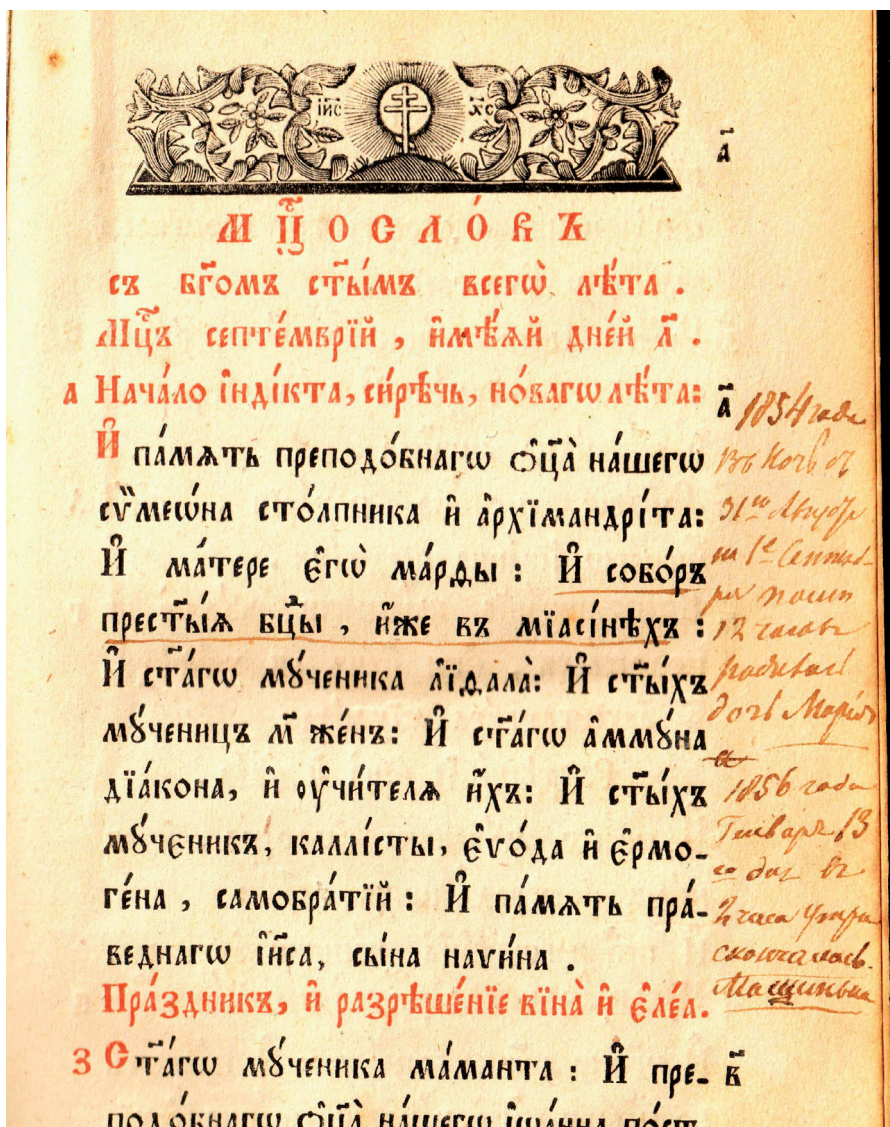 І҆И҃С Х҃С
а҃
МЦ҇ОСЛО́ВЪ
съ бг҃омъ ст҃ы́мъ всегѡ̀ лѣ́та .
Мцⷭ҇ъ септе́мврїй , и҆мѣ́ѧй дне́й л҃ .
а Нача́ло і҆ндікта, си́рѣчь, но́вагѡ лѣ́та: а҃
И҆ па́мѧть преподо́бнагѡ ѻ҆ц҃а̀ на́шегѡ
сѷмеѡ́на сто́лпника и҆ а҆рхїмандрі́та:
И҆ ма́тере є҆гѡ̀ ма́рѳы : И҆ собо́ръ
прест҃ы́ѧ бцⷣы , и҆́же въ мїасі́нѣхъ :
И҆ ст҃а́гѡ мꙋ́ченика а҆їѳала̀: И҆ ст҃ы́хъ
мꙋ́ченицъ м҃ же́нъ: И҆ ст҃а́гѡ а҆ммꙋ́на
дїа́кона, и҆ ᲂу҆чи́телѧ и҆́хъ: И҆ ст҃ы́хъ
мꙋ́ченикъ, каллі́сты, є҆ѵо́да и҆ є҆рмо-
ге́на , самобра́тїй : И҆ па́мѧть пра́-
веднагѡ і҆и҃са, сы́на наѵи́на .
Пра́здникъ, и҆ разрѣше́нїе вїна̀ и҆ є҆ле́а.
з Ст҃а́гѡ мꙋ́ченика ма́манта : И҆ пре- в҃
подо́бнагѡ ѻ҆ц҃а̀ на́шегѡ і҆ѡа́нна по́ст-
1854 года
Въ Ночь съ
31го Августа
на 1е Сентяб-
ря
12 часовъ
родилась
дочь Марія
1856 года
Генваря 13
го дня въ
2 часа утра
скончалась
Машинька